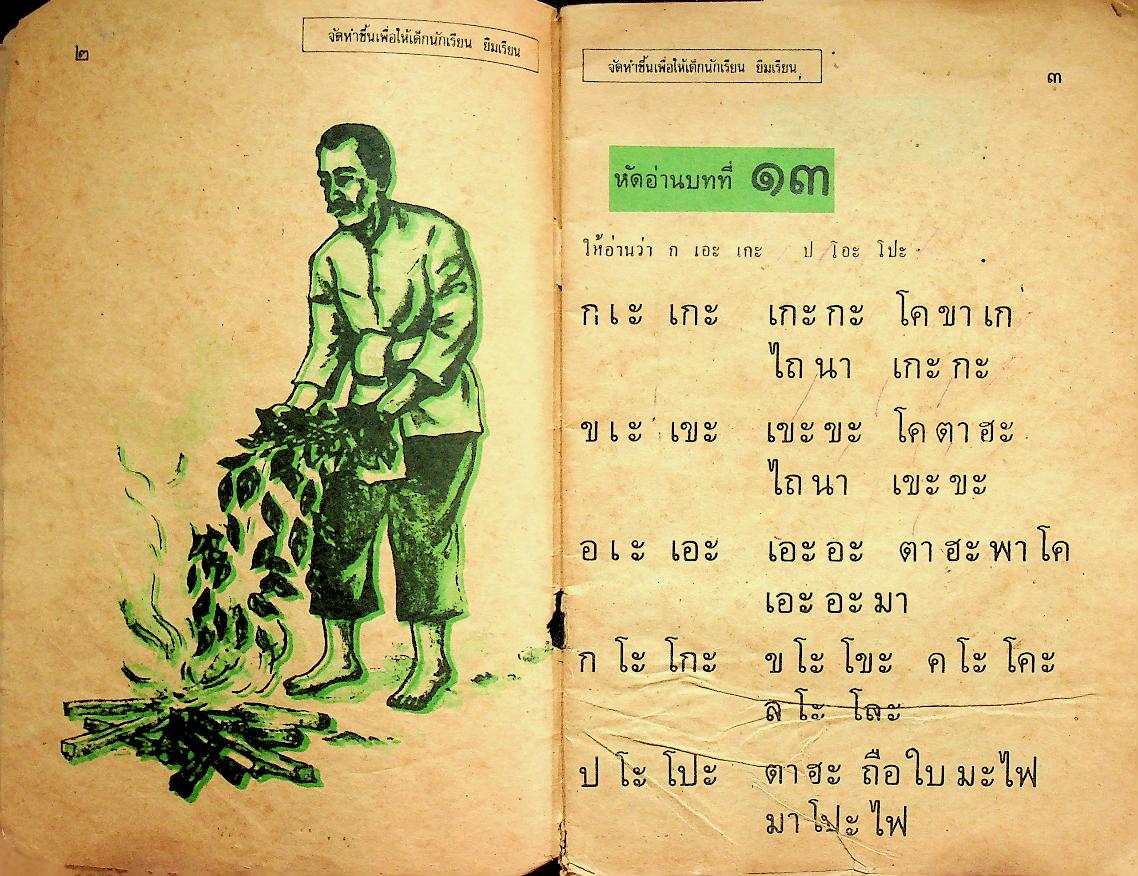 ๒
จัดทำขึ้นเพื่อให้เด็กนักเรียน ยืมเรียน
จัดทำขึ้นเพื่อให้เด็กนักเรียน ยืมเรียน
๓
หัดอ่านบทที่ ๑๓
ให้อ่านว่า ก เอะ เกะ ป โอะ โปะ
ก เ ะ เกะ เกะ กะ โค ขา เก
ไถ นา เกะ กะ
ข เ ะ เขะ เขะ ขะ โค ตา ฮะ
ไถ นา เขะ ขะ
อ เ ะ เอะ เอะ อะ ตา ฮะ พา โค
เอะ อะ มา
ก โ ะ โกะ ข โ ะ โขะ ค โ ะ โคะ
ล โ ะ โละ
ป โ ะ โปะ ตา ฮะ ถือ ใบ มะไฟ
มา โปะ ไฟ